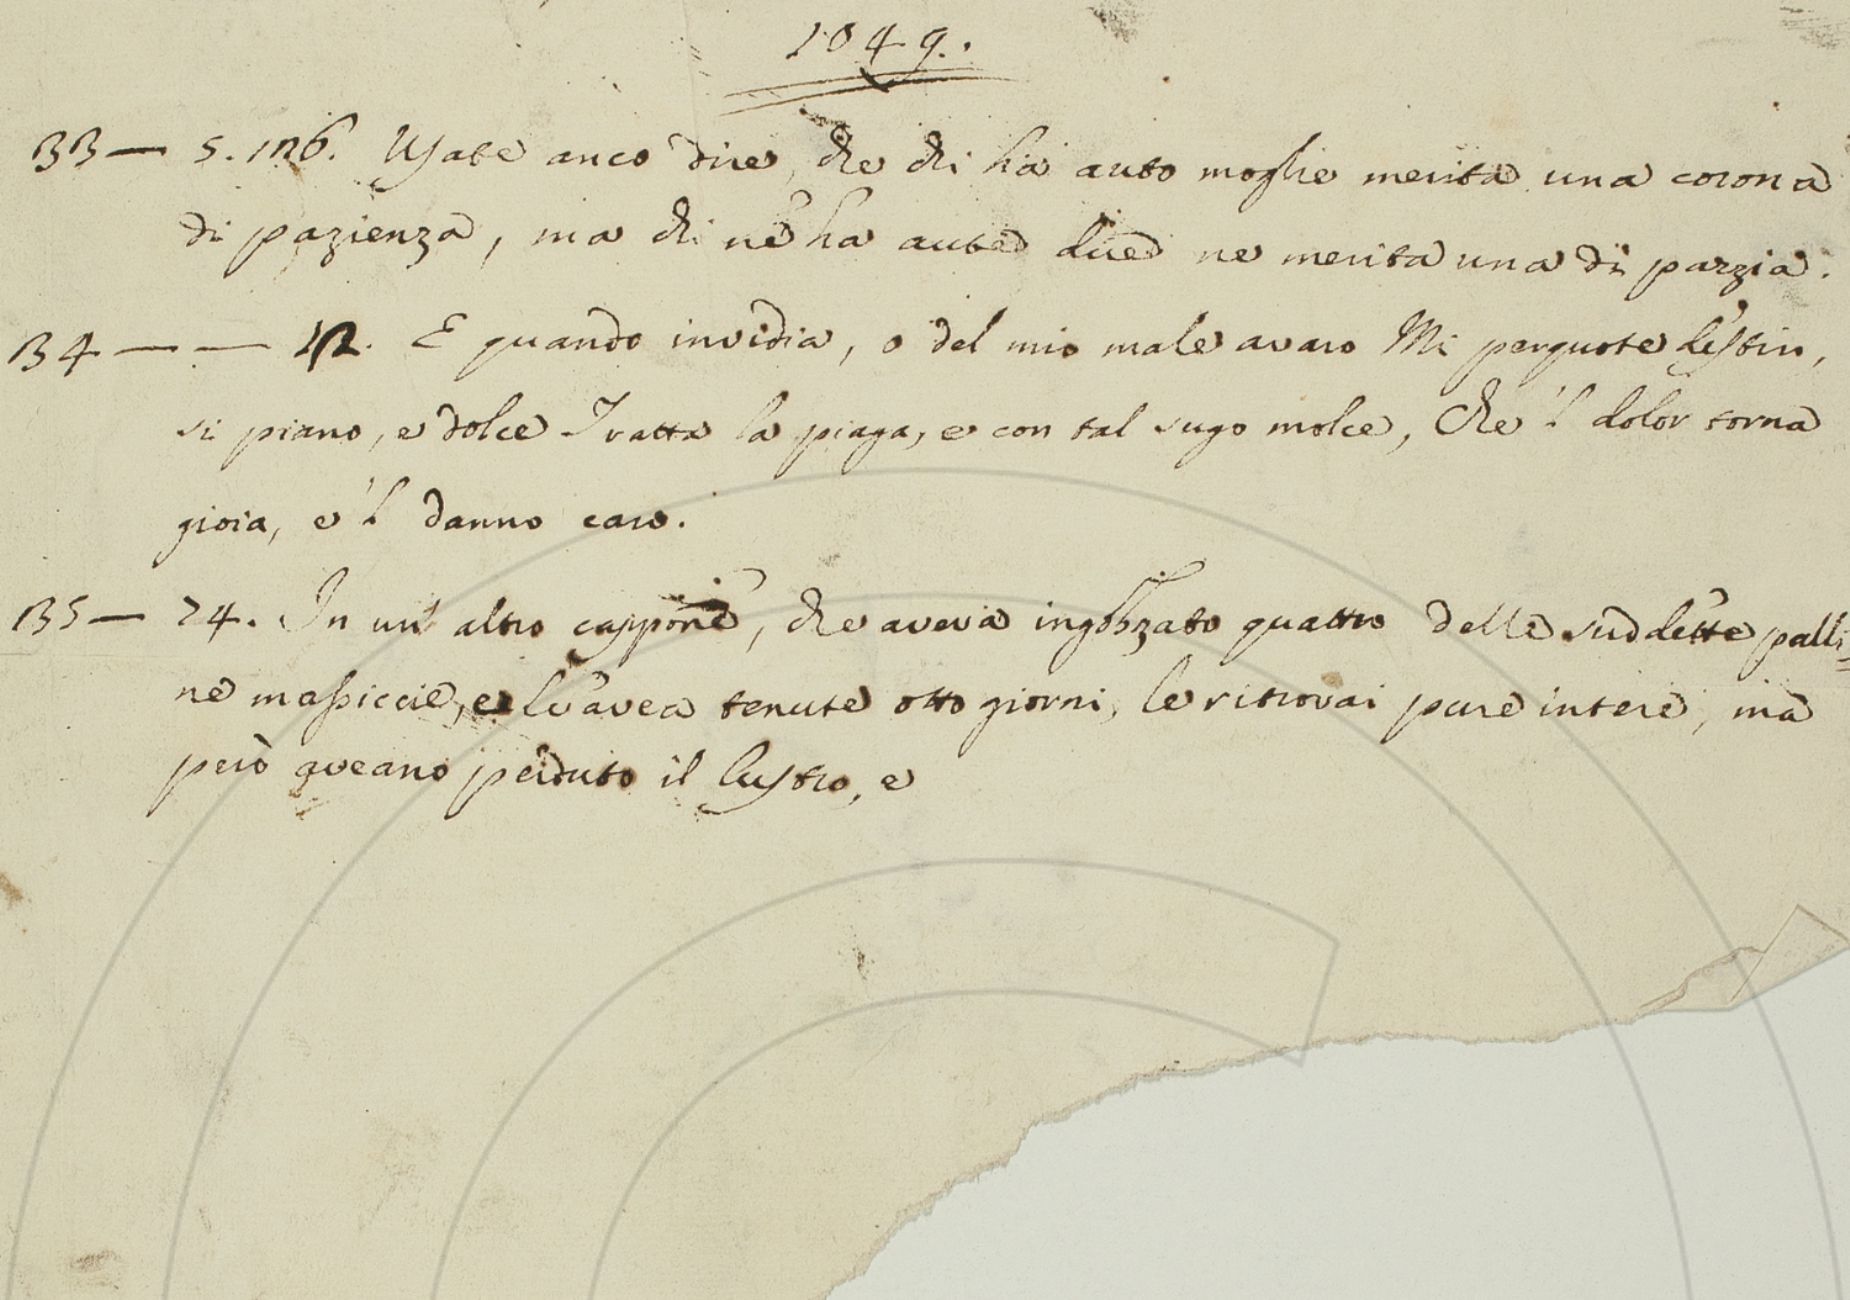 1849.
133 — 5. 126. Usate anco dire, che chi ha auto moglie merita una corona
di pazienza, ma chi ne ha aute due ne merita una di pazzia.
134 — — 12. E quando invidia, o del mio male avaro Mi perquote destin,
si piano, e dolce Tratta la piaga, e con tal sugo molce, Che 'l dolor torna
gioia, e 'l danno caro.
135 — 24. In un altro cappone, che aveva ingobzato quattro delle suddette palli=
ne massiccie, e lv'avea tenute otto giorni, le ritrovai pure intere, ma
però aveano perduto il lustro, e